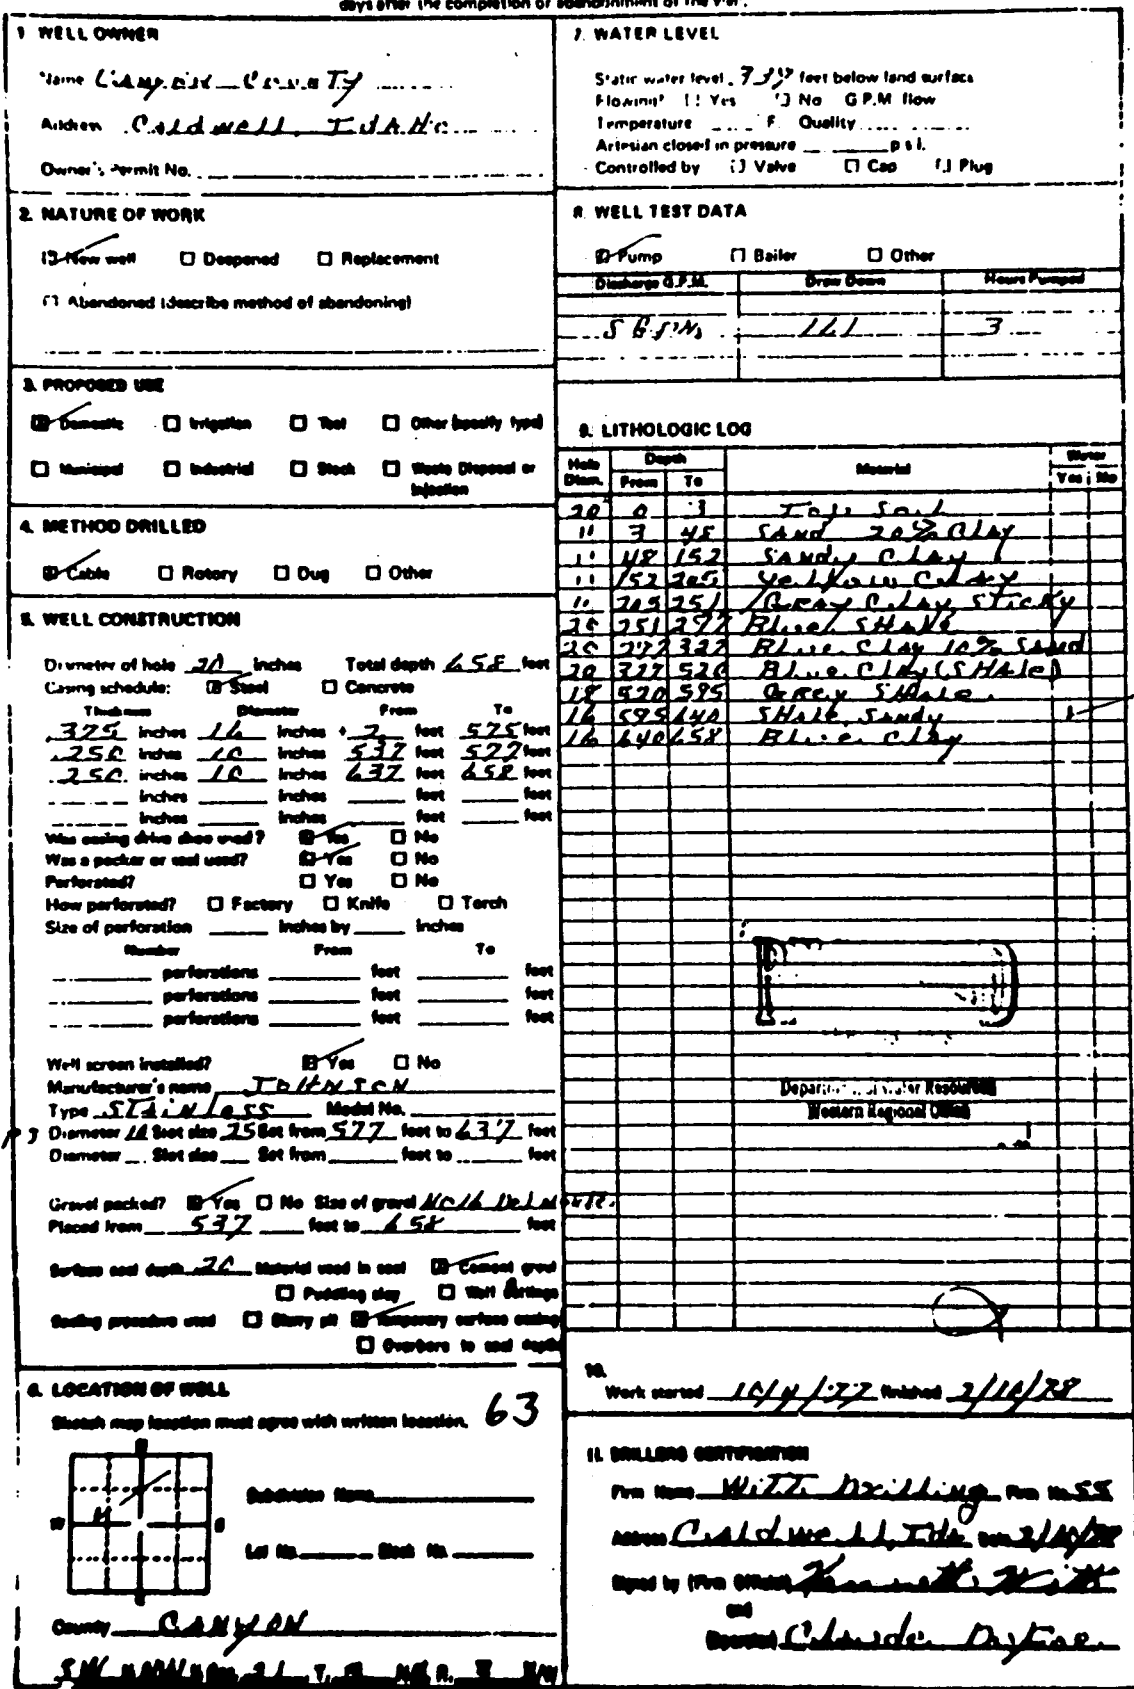 days after the completion or abandonment of the
1. WELL OWNER
Name Canyon County
Address Caldwell, Idaho
Owner's Permit No.
2. NATURE OF WORK
New well Deepened Replacement
Abandoned (describe method of abandoning)
3. PROPOSED USE
Domestic Irrigation Test Other (specify type)
Municipal Industrial Stock Waste Disposal or
Injection
4. METHOD DRILLED
Cable Rotary Dug Other
5. WELL CONSTRUCTION
Diameter of hole 20 inches Total depth 658 feet
Casing schedule: Steel Concrete
Thickness Diameter From To
.375 inches 16 inches + 2 feet 575 feet
.250 inches 10 inches 537 feet 577 feet
.250 inches 10 inches 637 feet 658 feet
inches inches feet feet
inches inches feet feet
Was casing drive shoe used? Yes No
Was a packer or seal used? Yes No
Perforated? Yes No
How perforated? Factory Knife Torch
Size of perforation inches by inches
Number From To
perforations feet feet
perforations feet feet
perforations feet feet
Well screen installed? Yes No
Manufacturer's name JOHNSON
Type Stainless Model No.
Diameter 10 Slot size 25 Set from 577 feet to 637 feet
Diameter Slot size Set from feet to feet
Gravel packed? Yes No Size of gravel
Placed from 537 feet to 658 feet
Surface seal depth 20 Material used in seal Cement grout
Puddling clay Well cuttings
Sealing procedure used Slurry pit Temporary surface casing
Overbore to seal depth
6. LOCATION OF WELL
Sketch map location must agree with written location. 63
N
W E
S
Subdivision Name
Lot No. Block No.
County CANYON
7. WATER LEVEL
Static water level feet below land surface
Flowing? Yes No G.P.M. flow
Temperature F. Quality
Artesian closed in pressure p.s.i.
Controlled by Valve Cap Plug
8. WELL TEST DATA
Pump Bailer Other
Discharge G.P.M. Draw Down Hours Pumped
3
9. LITHOLOGIC LOG
Hole Diam. Depth Material Water
From To Yes No
20" 0 3 Top Soil
" 3 48 Sand 20% Clay
" 48 152 Sandy Clay
" 152 205 Yellow Clay
" 205 251 Gray Clay, Sticky
20 251 277 Blue Shale
20 277 327 Blue Clay 10% Sand
20 327 520 Blue Clay (Shale)
18 520 595 Grey Shale
16 595 640 Shale, Sandy
16 640 658 Blue Clay
Department of Water Resources
Western Regional Office
10.
Work started 10/4/77 finished 2/10/78
11. DRILLERS CERTIFICATION
Firm Name Witt Drilling Firm No. 55
Address Caldwell, Ida Date 2/10/78
Signed by (Firm Official) Kenneth Witt
and
(Operator)